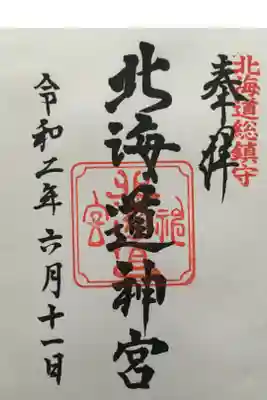 北海道総鎮守
奉拝
北海道神宮
令和二年六月十一日